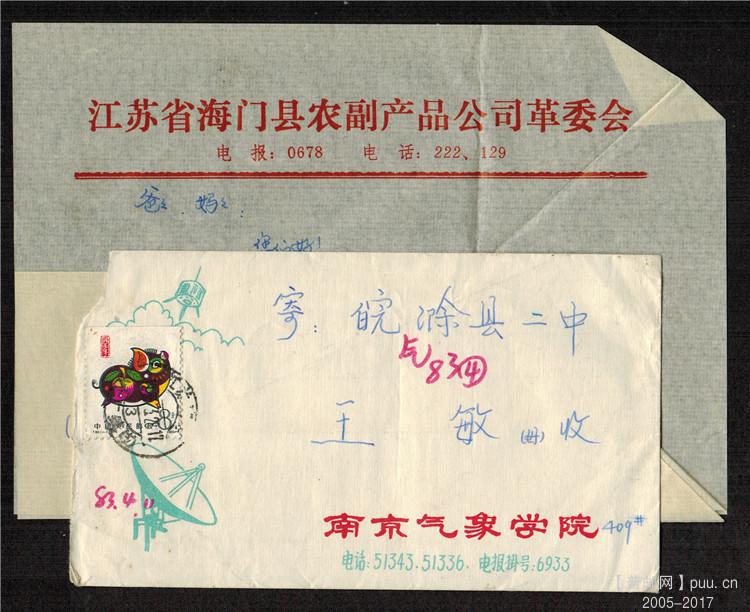 江苏省海门县农副产品公司革委会
电 报：0678 电 话：222、129
爸々 妈々：
您们好！
寄：皖滁县二中
83④
王 敏 收
83.4.11
南京气象学院 409#
电话：51343.51336. 电报掛号：6933
puu.cn
2005-2017